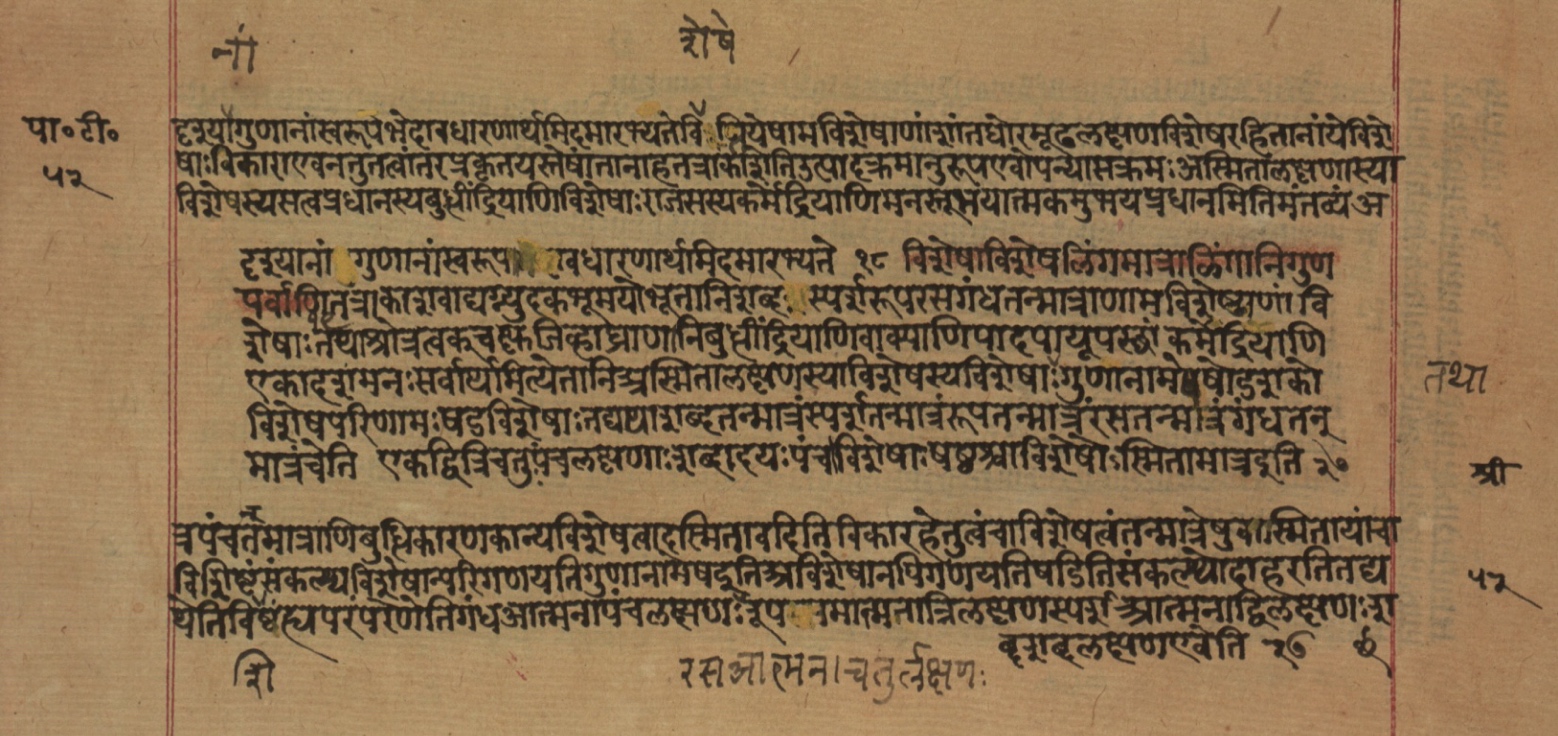 नां
शेषे
पा॰ टी॰
५२
दृश्यागुणानांस्वरूपभेदावधारणार्थमिदमारभ्यतेवि येषामविशेषाणांशांतघोरमूढलक्षणविशेषरहितानांयेविशे
षाःविकाराएवनतुतत्वांतरप्रकृतयस्तेषांतानाहतत्राकाशेतिउत्पादक्रमानुरूपएवोपन्यासक्रमःअस्मितालक्षणास्या
विशेषस्यसत्वप्रधानस्यबुद्धींद्रियाणिविशेषाःराजसस्यकर्मेंद्रियाणिमनस्तूभयात्मकमुभयप्रधानमितिमंतव्यंअ
दृश्यानां गुणानांस्वरूप वधारणार्थमिदमारभ्यते १८ विशेषाविशेषलिंगमात्रालिंगानिगुण
पर्वाणितत्राकाशवाय्वग्न्युदकभूमयोभूतानिशब्द स्पर्शरूपरसगंधतन्मात्राणामविशेषाणां वि
शेषाःतथाश्रोत्रत्वक्चक्षुजिव्हाघ्राणानिबुद्धींद्रियाणिवाक्पाणिपादपायूपस्था कर्मेंद्रियाणि
एकादशमनःसर्वार्थमित्येतानिअस्मितालक्षणस्याविशेषस्यविशेषाःगुणानामेषषोडशको
तथा
विशेषपरिणामःषडविशेषाःतद्यथाशब्दतन्मात्रंस्पर्शतन्मात्रंरूपतन्मात्रंरसतन्मात्रंगंधतन्
मात्रंचेति एकद्वित्रिचतुपंचलक्षणाःशब्दादयःपंचाविशेषाःषष्ठश्चाविशेषोऽस्मितामात्रइति २०
श्री
५२
त्रपंचतन्मात्राणिबुद्धिकारणकान्यविशेषत्वादस्मितावदितिविकारहेतुत्वंचाविशेषत्वंतन्मात्रेषुवास्मितायांचा
विशिष्टंसंकलय्यविशेषान्परिगणयतिगुणानामेषइतिअविशेषानपिगणयतिषडितिसंकलय्योदाहरतितद्य
थेतिविष्टंह्यपरंपरेणेतिगंधआत्मनापंचलक्षणःरूप मात्मनात्रिलक्षणस्पर्श आत्मनाद्विलक्षणःश
ब्दशब्दलक्षणएवेति २७
शि
रसआत्मनाचतुर्लक्षणः